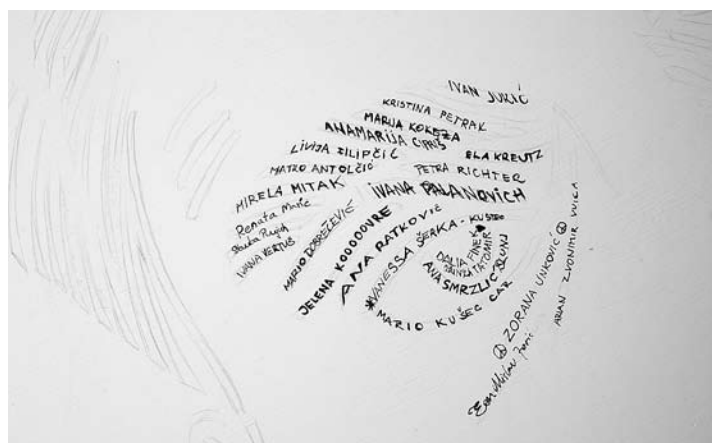 IVAN JURIĆ
KRISTINA PETRAK
MARIJA KOKEZA
ANAMARIJA CIPRIŠ
LIVIJA ZILIPČIĆ
ELA KREUTZ
MATKO ANTOLČIĆ
PETRA RICHTER
MIRELA MITAK
IVANA PALANOVICH
Renata
IVANA VERTUŠ
MARIO DOBREČEVIĆ
JELENA KOOOOVRE
ANA RATKOVIČ
*VANESSA ŠERKA-KUSTRO
DALIA FINEK
TATOMIR
ANA SMRZLIĆ
MARIO KUŠEC CAR
ZORANA UNKOVIĆ
ZVONIMIR VUICA